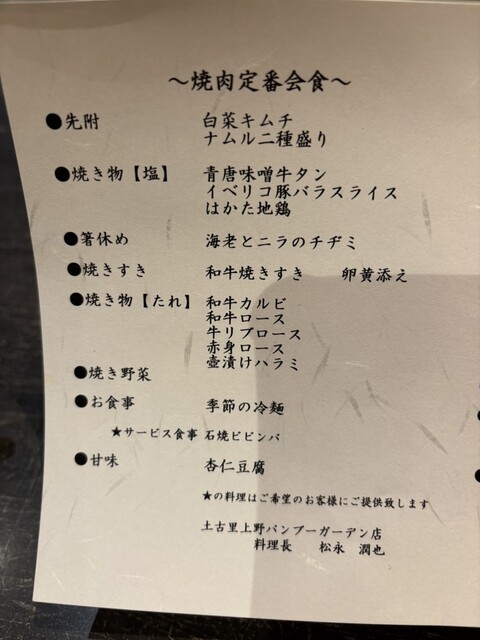 ～焼肉定番会食～
●先附 白菜キムチ
ナムル二種盛り
●焼き物【塩】 青唐味噌牛タン
イベリコ豚バラスライス
はかた地鶏
●箸休め 海老とニラのチヂミ
●焼きすき 和牛焼きすき 卵黄添え
●焼き物【たれ】 和牛カルビ
和牛ロース
牛リブロース
赤身ロース
壺漬けハラミ
●焼き野菜
●お食事 季節の冷麺
★サービス食事 石焼ビビンバ
●甘味 杏仁豆腐
★の料理はご希望のお客様にご提供致します
土古里上野バンブーガーデン店
料理長 松永 潤也